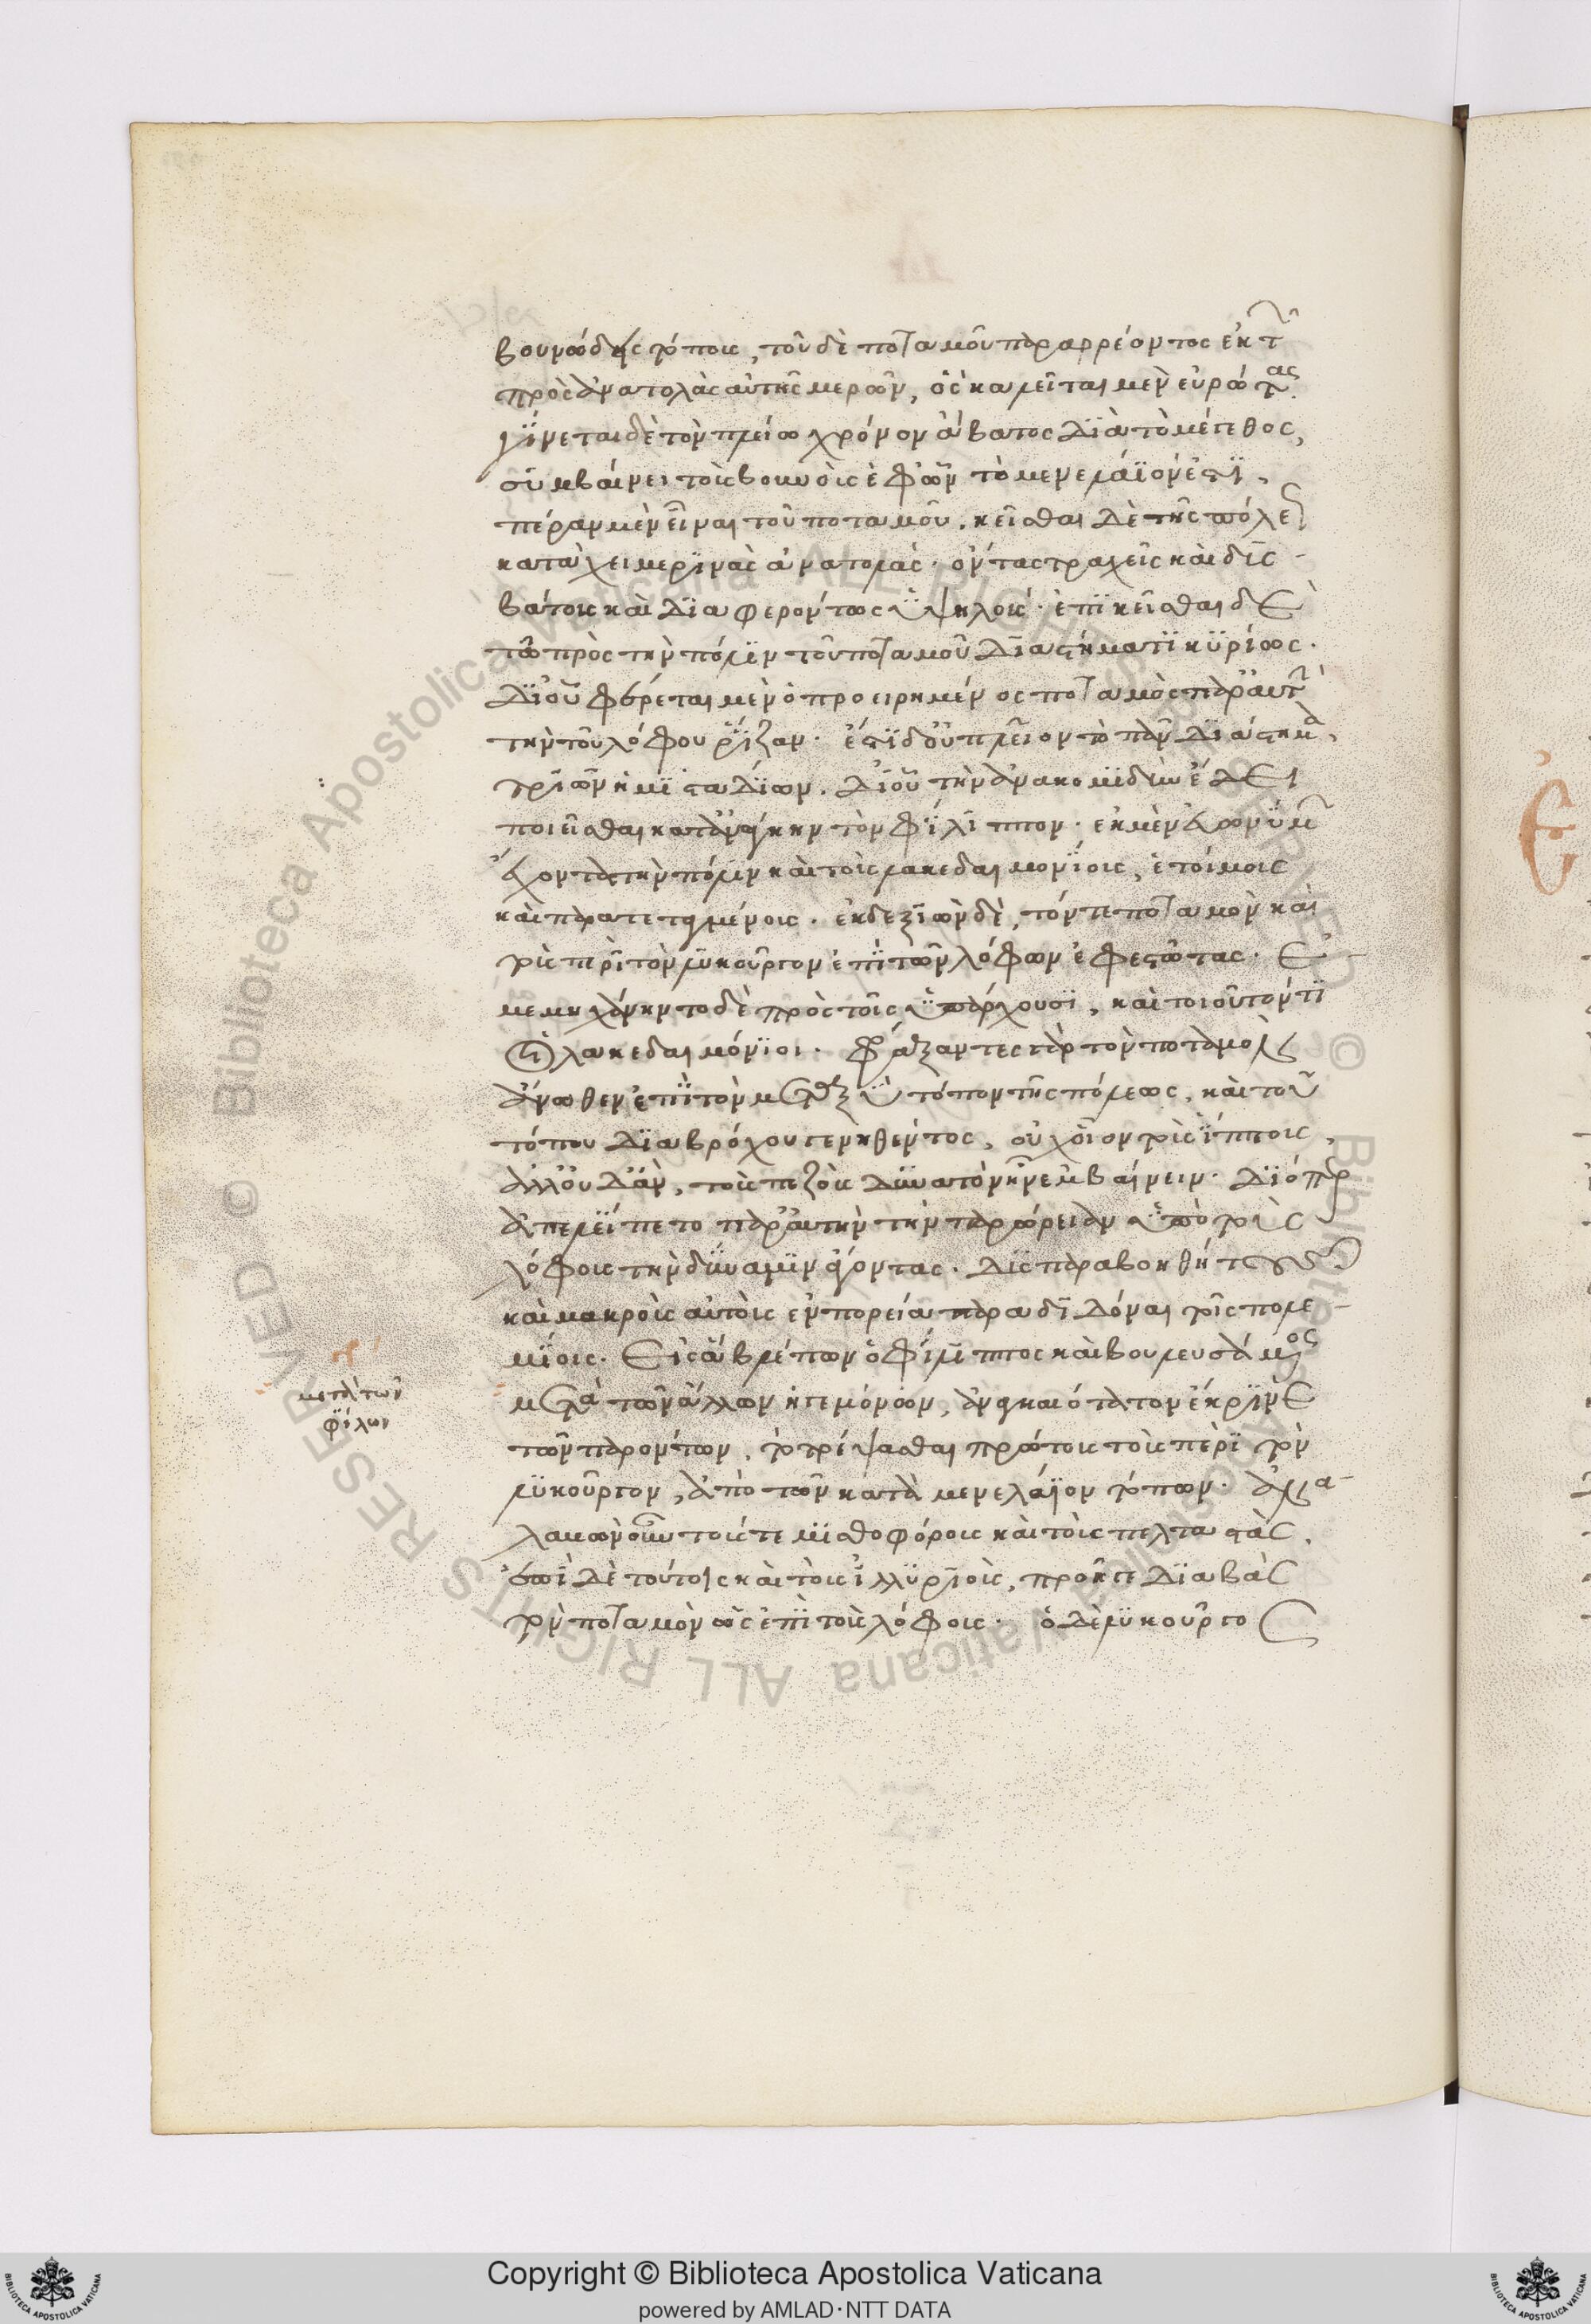 βουνώδεις τόπους, τοῦ δὲ ποταμοῦ παραρρέοντος ἐκ τῶν
πρὸς ἀνατολὰς αὐτῆς μερῶν, ὃς καλεῖται μὲν εὐρώτας
γίνεται δὲ τὸν πλείω χρόνον ἄβατος διὰ τὸ μέγεθος,
συμβαίνει τοὺς βουνοὺς ἐφ' ὧν τὸ μενελάϊόν ἐστι,
πέραν μὲν εἶναι τοῦ ποταμοῦ. κεῖσθαι δὲ τῆς πόλεως
κατὰ χειμερινὰς ἀνατολάς. ὄντας τραχεῖς καὶ δυς-
βάτους καὶ διαφερόντως ὑψηλούς. ἐπικεῖσθαι δὲ
τῶ πρὸς τὴν πόλιν τοῦ ποταμοῦ διαστήματι κυρίως.
δι' οὗ φέρεται μὲν ὁ προειρημένος ποταμὸς παρ' αὐτὴν
τὴν τοῦ λόφου ῥίζαν. ἔστι δ' οὐ πλεῖον τὸ πᾶν διάστημα,
τριῶν ἡμισταδίων. δι' οὗ τὴν ἀνακομιδὴν ἔδει
ποιεῖσθαι κατ' ἀνάγκην τὸν φίλιππον. ἐκ μὲν εὐωνύμων
ἔχοντα τὴν πόλιν καὶ τοὺς λακεδαιμονίους, ἑτοίμους
καὶ παρατεταγμένους. ἐκ δεξιῶν δὲ, τόν τε ποταμὸν καὶ
τοὺς περὶ τὸν λυκοῦργον ἐπὶ τῶν λόφων ἐφεστῶτας. ἐ-
μεμηχάνηντο δὲ πρὸς τοῖς ὑπάρχουσι, καὶ τοιοῦτόν τι
οἱ λακεδαιμόνιοι. φράξαντες γὰρ τὸν ποταμὸν
ἄνωθεν ἐπὶ τὸν μεταξὺ τόπον τῆς πόλεως, καὶ τοῦ
τόπου διαβρόχου γενηθέντος, οὐχ οἷον τοὺς ἵππους,
ἀλλ' οὐδ' ἂν, τοὺς πεζοὺς δυνατὸν ἦν ἐμβαίνειν. διόπερ
ἀπελείπετο παρ' αὐτὴν τὴν παρώρειαν ὑπὸ τοὺς
λόφους τὴν δύναμιν ἄγοντας. δυσπαραβοηθήτους
καὶ μακροὺς αὐτοὺς ἐν πορεία παραδιδόναι τοῖς πολε-
μίοις. Εἰς ἃ βλέπων ὁ φίλιππος καὶ βουλευσάμενος
μετὰ τῶν ἄλλων ἡγεμόνων, ἀναγκαιότατον ἔκρινε
μετὰ τῶν
φίλων
τῶν παρόντων, τὸ τρέψασθαι πρώτους τοὺς περὶ τὸν
λυκοῦργον, ἀπὸ τῶν κατὰ μενελάϊον τόπων. ἀνα-
λαβὼν οὖν τούς τε μισθοφόρους καὶ τοὺς πελταστὰς,
ἐπὶ δὲ τούτοις καὶ τοὺς ἰλλυριοὺς, προῆγε διαβὰς
τὸν ποταμὸν ὡς ἐπὶ τοὺς λόφους. ὁ δὲ λυκοῦργος
Copyright © Biblioteca Apostolica Vaticana
powered by AMLAD·NTT DATA